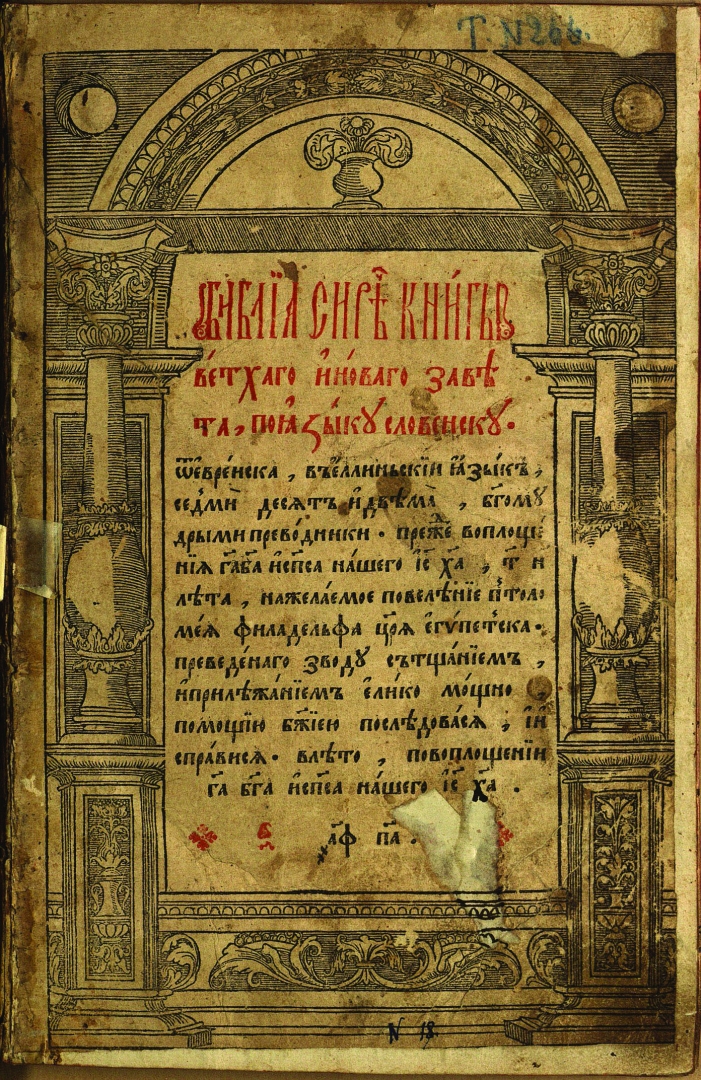 Т. N 266.
БИБЛІѦ СИРѢ҃Ч КНИ́ГЫ
ве́тхаго и҆но́ваго завѣ
та, поꙗ҆зы́кꙋ словенскꙋ.
ѿевре́йска, въе́ллиньскїи ꙗ҆зы́къ,
се́дмиꙵ десѧтъ и҆двѣма̀, бг҃омꙋ́
дрыми преводники. пре́жⷣе воплоще́
нїѧ гаⷭ҇ба҃ и҆сп҃са на́шего і҆с҃ ха҃, т҃ и
лѣ́та, нажела́емое повелѣ́нїе пто́ло
ме́ѧ филаде́льфа цр҃ѧ е҆гѵ́петьска.
преведе́наго зводꙋ сътща́нїемъ,
и҆прилѣжа́нїемъ е҆ли́ко мо́щно,
по́мощїю бж҃їею послѣ́довасѧ, и҆и
спра́висѧ. влѣ́то, повоплоще́нїи
га҃ бг҃а и҆сп҃са на́шего і҆с҃ ха҃.
҂аф҃ па҃.
N 18.